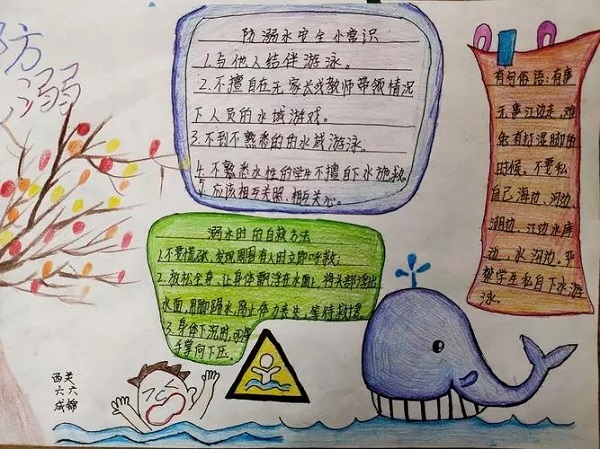 防溺
防溺水安全小常识
1.与他人结伴游泳。
2.不擅自在无家长或教师带领情况
下人员的水域游戏。
3.不到不熟悉的的水域游泳。
4.不熟悉水性的学生不擅自下水抛救
5.应该相互关照,相互关心。
有句俗语:有事
无事江边走,难
免有打湿脚的
时候,不要私
自己海边、河边、
湖边、江边水库
边、水沟边,平
学生私自下水游
泳.
溺水时的自救方法
1.不要慌张,发现周围有人时立即呼救;
2.放松全身,让身体飘浮在水面上,将头部浮出
水面,用脚踢水,防止体力丧失,等待救援
3.身体下沉时,可将
手掌向下压
西关
六六
成锦